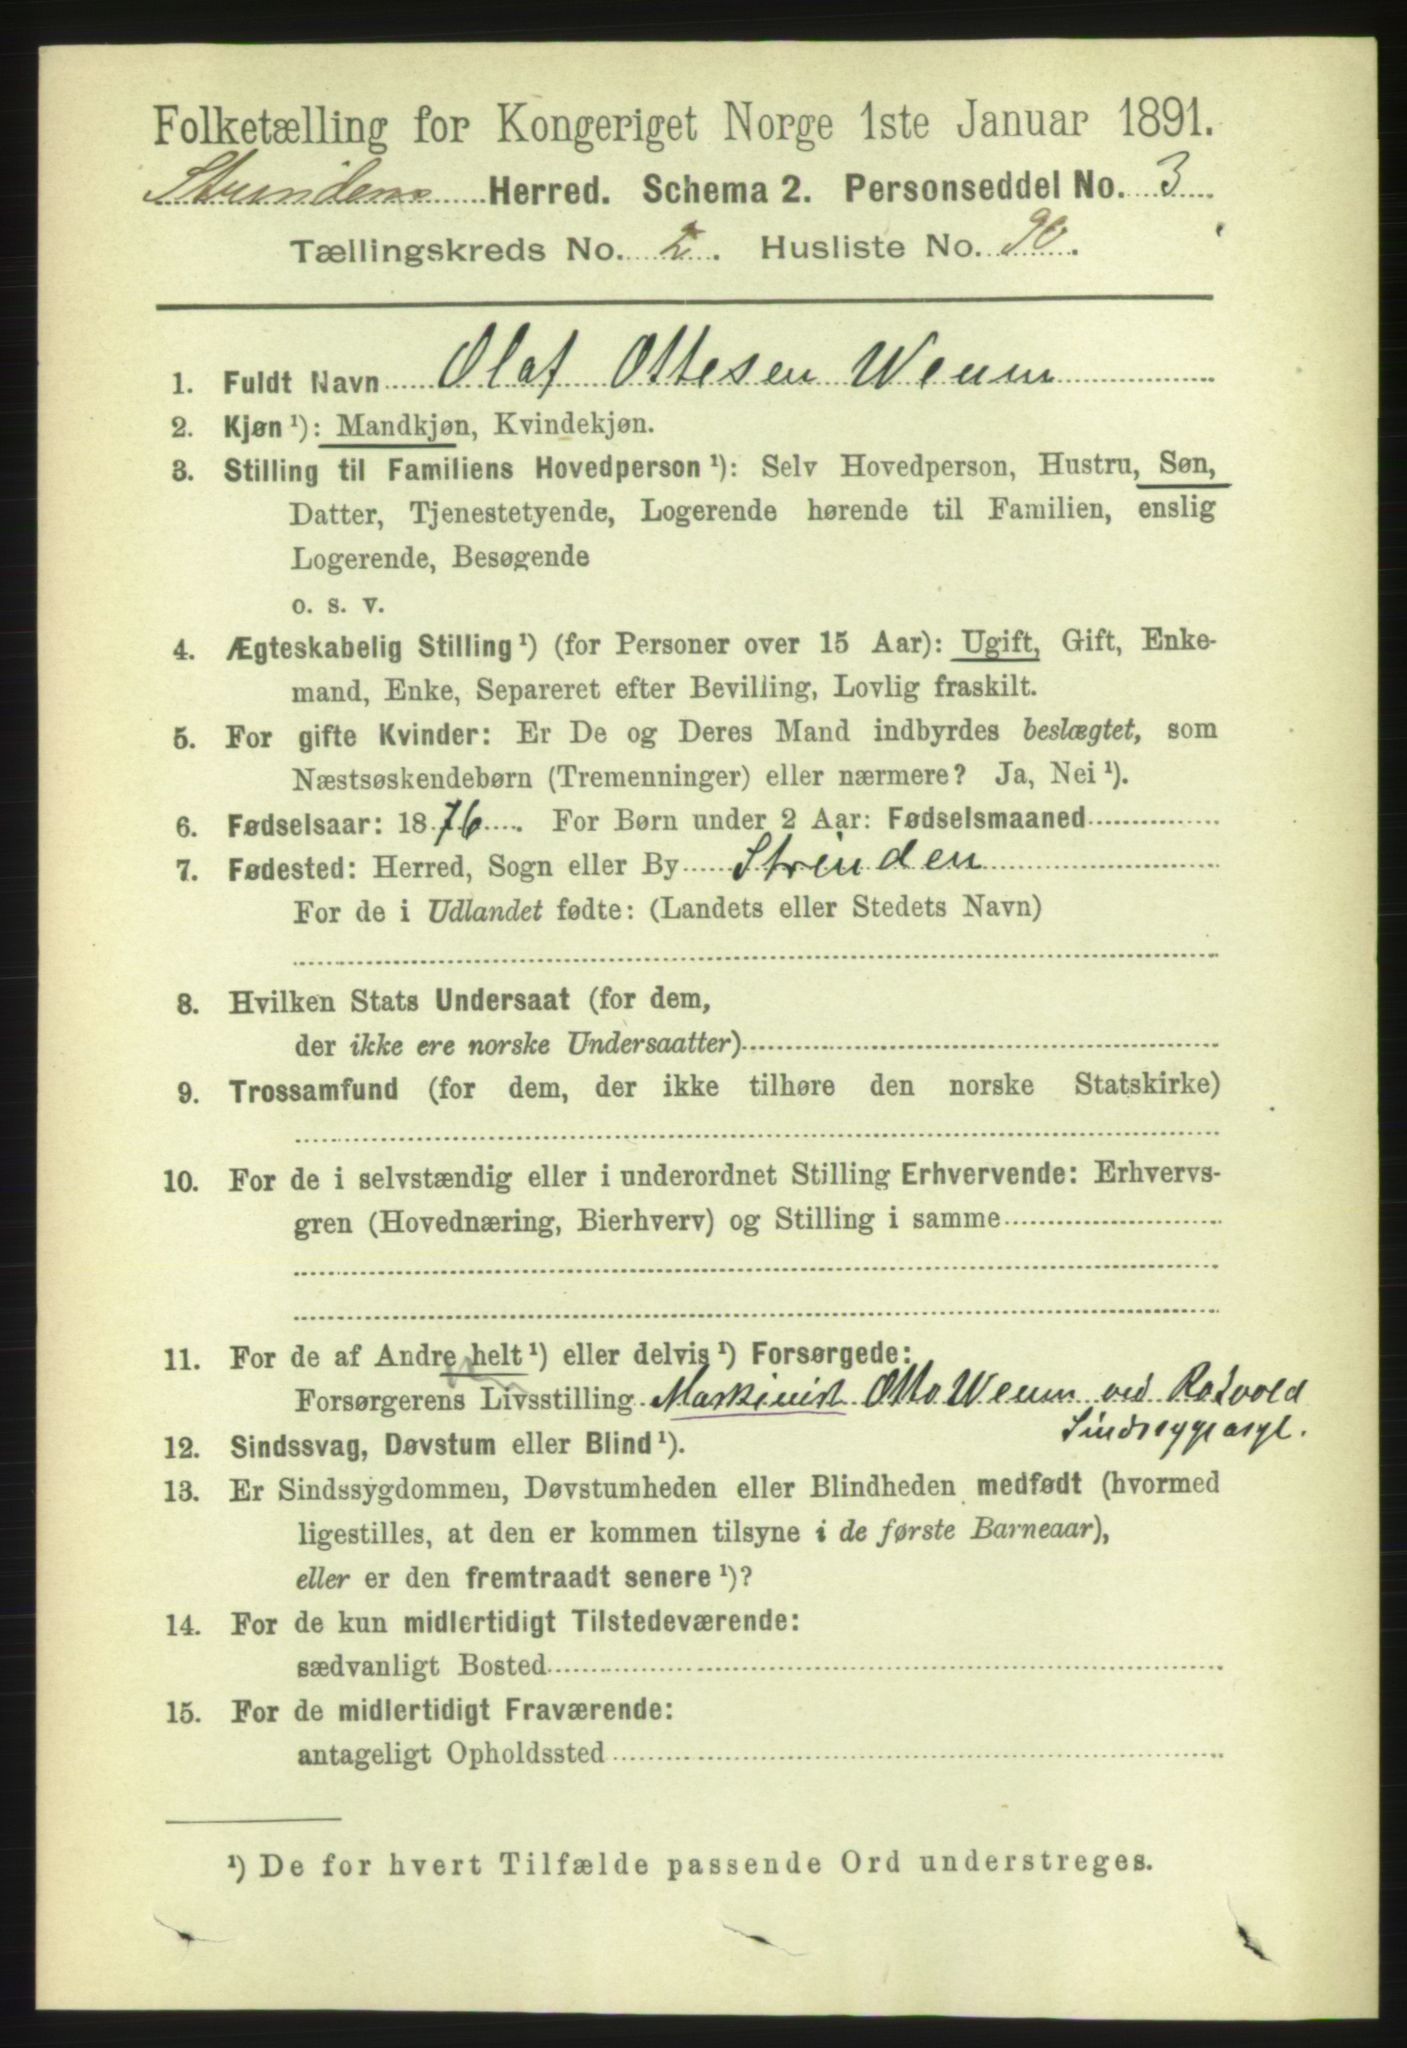 Folketælling for Kongeriget Norge 1ste Januar 1891.
Strindens Herred. Schema 2. Personseddel No. 3
Tællingskreds No. 2. Husliste No. 90.
1. Fuldt Navn Olaf Ottesen Weum
2. Kjøn ¹): Mandkjøn, Kvindekjøn.
3. Stilling til Familiens Hovedperson ¹): Selv Hovedperson, Hustru, Søn,
Datter, Tjenestetyende, Logerende hørende til Familien, enslig
Logerende, Besøgende
o. s. v.
4. Ægteskabelig Stilling ¹) (for Personer over 15 Aar): Ugift, Gift, Enke-
mand, Enke, Separeret efter Bevilling, Lovlig fraskilt.
5. For gifte Kvinder: Er De og Deres Mand indbyrdes beslægtet, som
Næstsøskendebørn (Tremenninger) eller nærmere? Ja, Nei ¹).
6. Fødselsaar: 1876. For Børn under 2 Aar: Fødselsmaaned
7. Fødested: Herred, Sogn eller By Strinden
For de i Udlandet fødte: (Landets eller Stedets Navn)
8. Hvilken Stats Undersaat (for dem,
der ikke ere norske Undersaatter)
9. Trossamfund (for dem, der ikke tilhøre den norske Statskirke)
10. For de i selvstændig eller i underordnet Stilling Erhvervende: Erhvervs-
gren (Hovednæring, Bierhverv) og Stilling i samme
11. For de af Andre helt ¹) eller delvis ¹) Forsørgede:
Forsørgerens Livsstilling Maskinist Otto Weum ved Rotvold
Sindssygeasyl.
12. Sindssvag, Døvstum eller Blind ¹).
13. Er Sindssygdommen, Døvstumheden eller Blindheden medfødt (hvormed
ligestilles, at den er kommen tilsyne i de første Barneaar),
eller er den fremtraadt senere ¹)?
14. For de kun midlertidigt Tilstedeværende:
sædvanligt Bosted
15. For de midlertidigt Fraværende:
antageligt Opholdssted
¹) De for hvert Tilfælde passende Ord understreges.